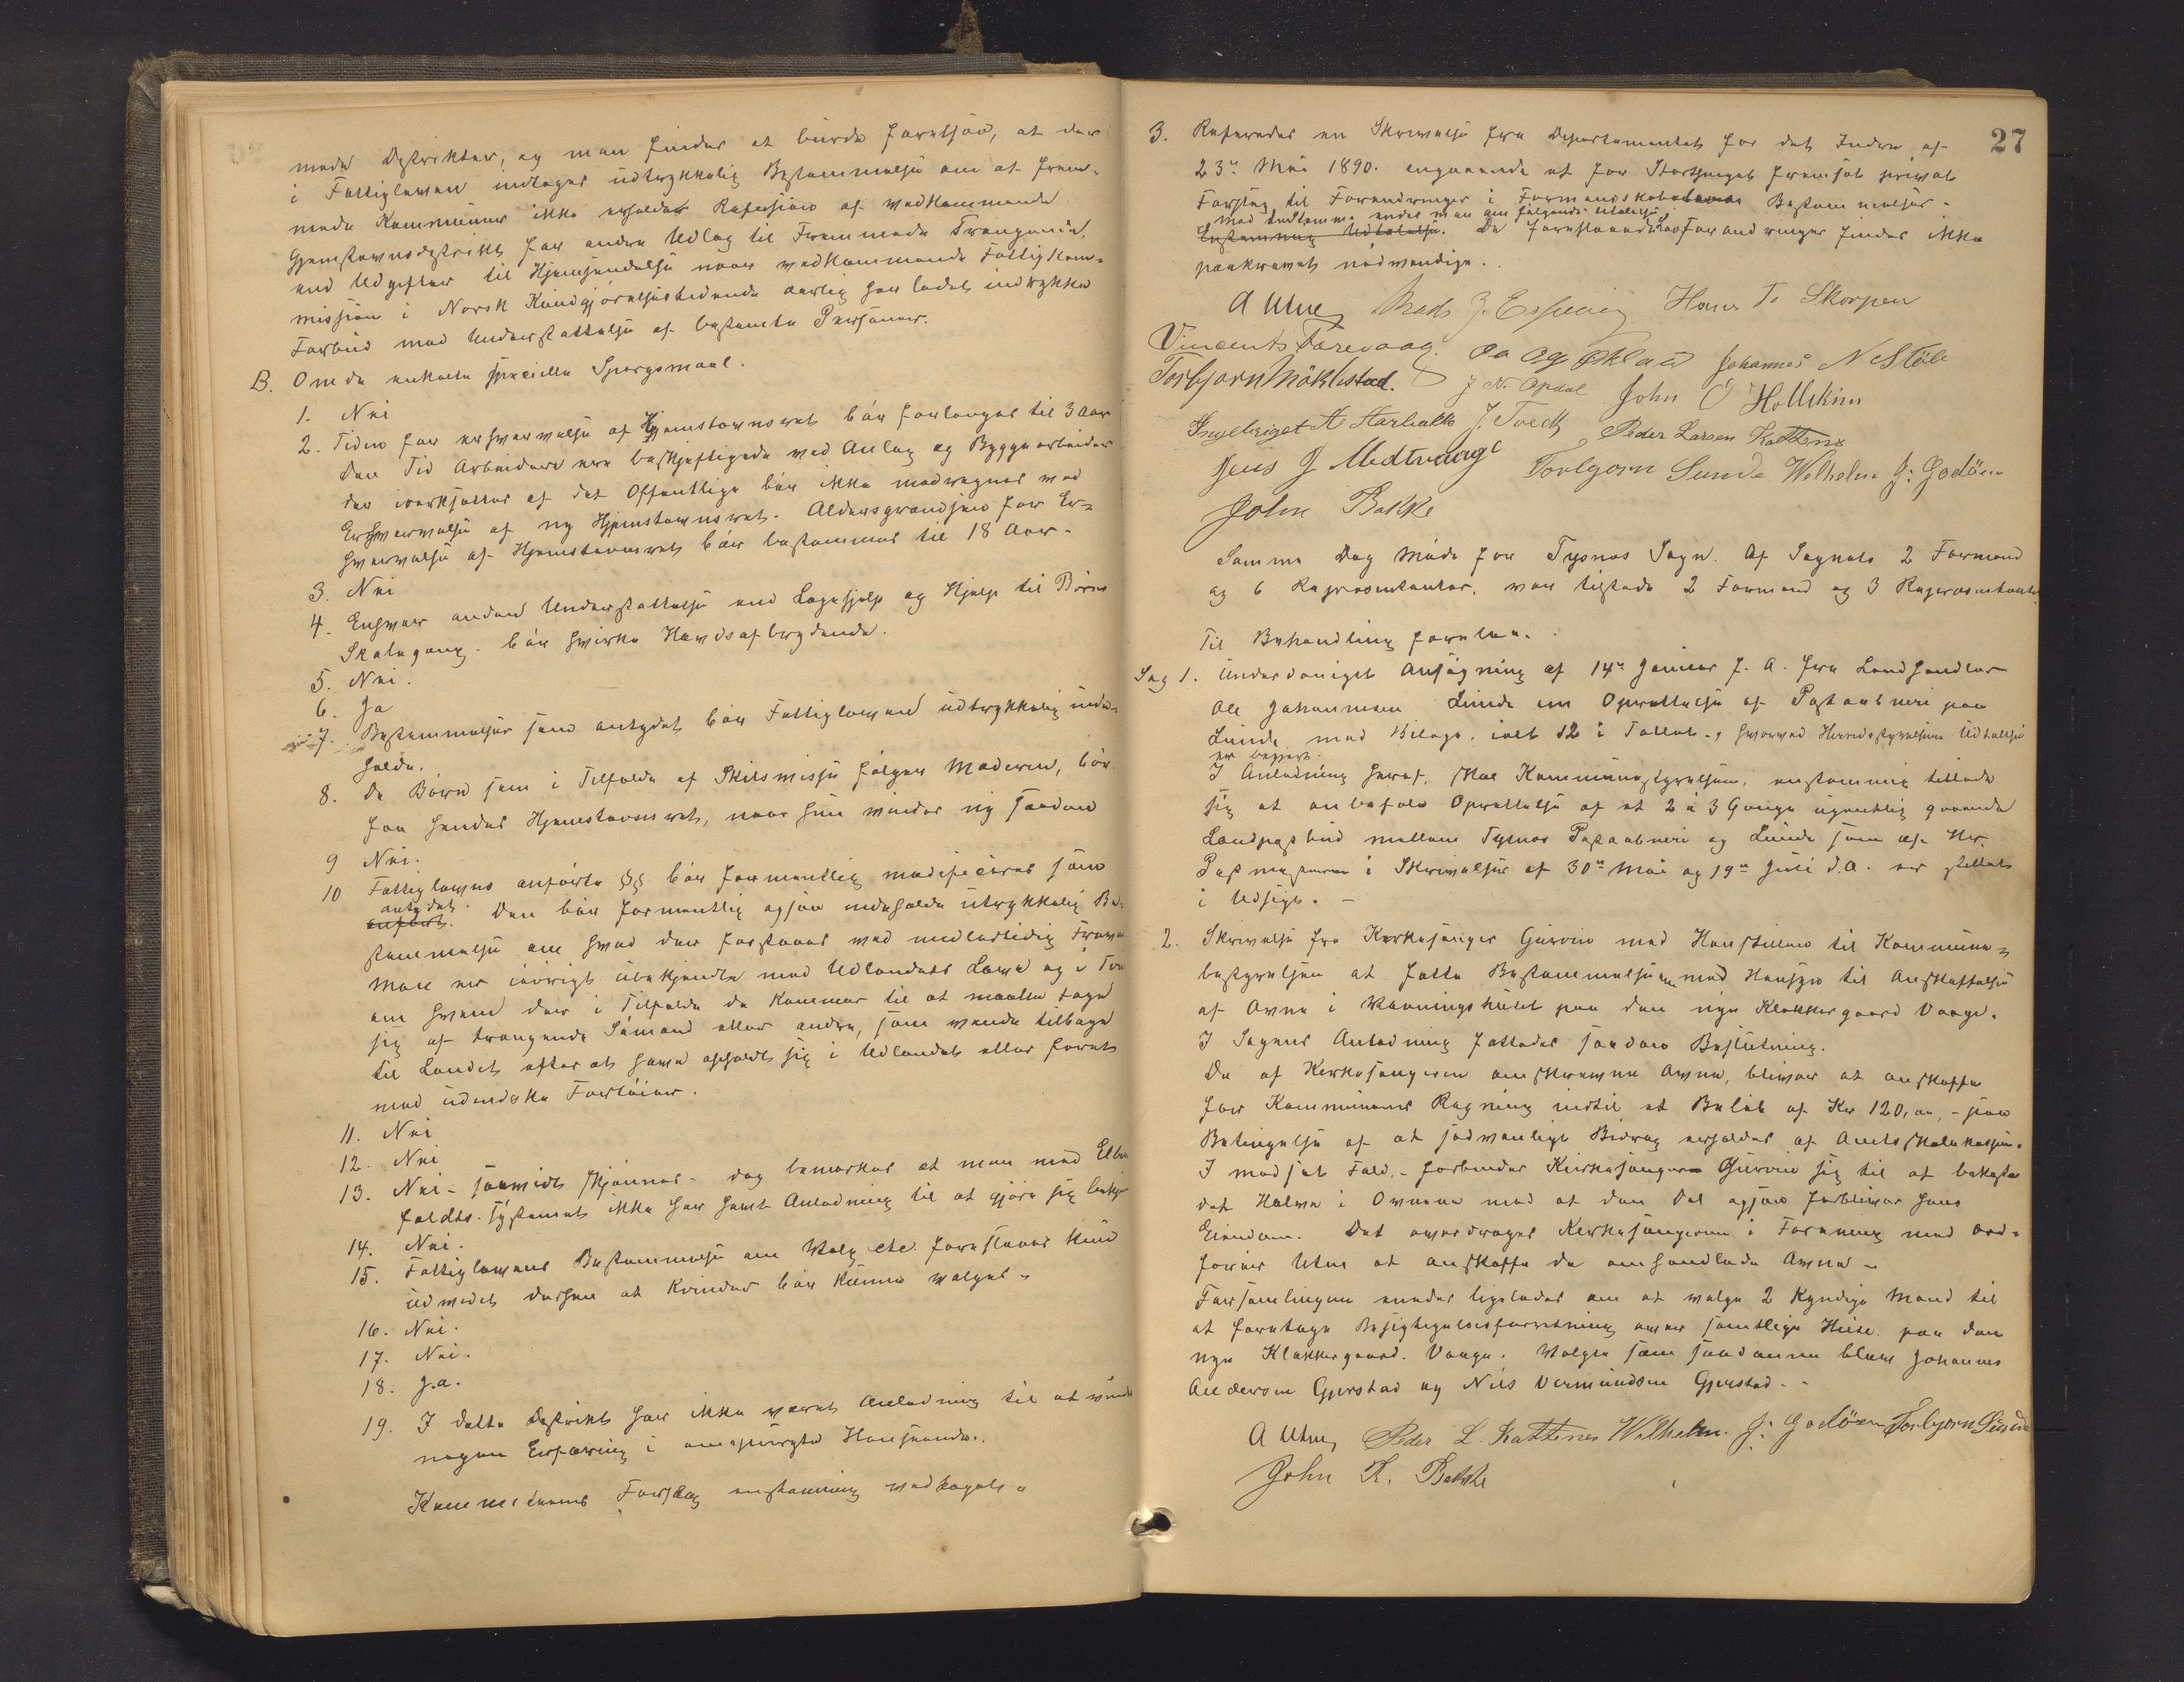 mede Dystrikter, og man finder at burde foreslaaes, at der
i Fattigloven indtages udtrykkelig Bestemmelse om at frem-
mede Kommuner ikke erholder Refusion af vedkommende
Hjemstavnsdistrikt for andre Udlæg til Fremmede Trængende,
end Udgifter til Hjemsendelse naar vedkommende Fattigkom-
mission i Norsk Kundgjørelsestidende aarlig har ladet indrykke
Forbud mod Understøttelse af bestemte Personer.
B. Om de enkelte specielle Spørgsmaal.
1. Nei
2. Tiden for erhvervelse af Hjemstavnsret bør forlænges til 3 Aar
Den Tid Arbeidere ere beskjeftigede ved Anlæg og Byggearbeider
der iverksættes af det Offentlige bør ikke medregnes ved
Erhvervelse af ny Hjemstavnsret. Aldersgrændsen for Er-
hvervelse af Hjemstavnsret bør bestemmes til 18 Aar.
3. Nei
4. Enhver anden Understøttelse end Lægehjelp og Hjelp til Børns
Skolegang. bør virke Hævdsafbrydende.
5. Nei.
6. Ja
7. Bestemmelser som antydet bør Fattigloven udtrykkelig inde-
holde.
8. De Børn som i Tilfælde af Skilsmisse følger Moderen, bør
faa hendes Hjemstavnsret, naar hun vinder ny saadan
9 Nei.
10 Fattiglovens anførte §§ bør formentlig modificeres som
antydet.
anført. Den bør formentlig ogsaa indeholde utrykkelig Be-
stemmelse om hvad der forstaaes ved midlertidig Fravær
Man er iøvrigt ubekjendt med Udlandets Love og i Tvil
om hvem der i Tilfælde de kommer til at maatte tage
sig af trængende Sømænd eller andre, som vende tilbage
til Landet efter at have opholdt sig i Udlandet eller faret
med udenlandske Fartøier.
11. Nei
12. Nei
13. Nei - saavidt skjønnes - dog bemærkes at man med Elber-
feldts-systemet ikke har havt Anledning til at gjøre sig bekjendt
14. Nei.
15. Fattiglovens Bestemmelse om Valg etc forestaaes kun
udvidet derhen at Kvinder bør kunne vælges -
16. Nei.
17. Nei.
18. Ja.
19. I dette Distrikt har ikke været Anledning til at vinde
nogen Erfaring i omspurgte Henseende.
Kommiteens Forslag enstemmig vedtaget -
27
3. Refereredes en Skrivelse fra Departementet for det Indre af
23de Mai 1890. angaaende et for Storthinget fremsat privat
Forslag til Forandringer i Formandskabslovens Bestemmelser -
Mod Stemme endes man om følgende Udtalelse
Enstemmig Udtalelse. De foreslaaede Forandringer findes ikke
paakrævet nødvendige.
A Uttne Mads J. Espevig Hans T. Skorpen
Vincents Færevaag. Aa Ag Økland Johannes N Støle
Torbjorn Möklestad. J N. Opdal John O Hollekim
Ingebrigt A Aarbakke J. Tveit Peder Larsen Kattenes
Jens J Midtvaage Torbjorn Sunde Wilhelm J: Godöen
John Bakke
Samme Dag Møde for Tysnæs Sogn. Af Sognets 2 Formænd
og 6 Repræsentanter, var tilstede 2 Formænd og 3 Repræsentanter
Til Behandling forelaa.
Sag 1. Underdanigst Ansøgning af 14de Januar f. A. fra Landhandler
Ole Johannesen Lunde om Oprettelse af Postaabneri paa
Lunde med Bilage, ialt 12 i Tallet, hvorved Herredsstyrelsens Udtalelse
er begjært
I Anledning heraf, skal Kommunestyrelsen, enstemmig tillade
sig at anbefale Oprettelse af et 2 à 3 Gange ugentlig gaaende
Landpostbud mellem Tysnæs Postaabneri og Lunde som af Hr.
Postmesteren i Skrivelse af 30de Mai og 19de Juli d.A. er stillet
i Udsigt. -
2. Skrivelse fra Kirkesanger Gurvin med Henstillen til Kommune-
bestyrelsen at fatte Bestemmelse om med Hensyn til Anskaffelse
af Ovne i Vaaningshuset paa den nye Klokkergaard Vaage.
I Sagens Anledning fattedes saadan Beslutning.
De af Kirkesangeren omskrevne Ovne, bliver at anskaffe
for Kommunens Regning indtil et Beløb af Kr 120,oo, - paa
Betingelse af at sedvanligt Bidrag erholdes af Amtsskolekassen.
I modsat Fald, - forbinder Kirkesanger Gurvin sig til at bekoste
det Halve i Ovnene mod at den Del ogsaa forbliver hans
Eiendom. Det overdrages Kirkesangeren i Forening med Ord-
fører Utne at anskaffe de omhandlede Ovne -
Forsamlingen enedes ligeledes om at vælge 2 kyndige Mænd til
at foretage Besigtigelsesforretning over samtlige Huse paa den
nye Klokkergaard. Vaage. Valgte som saadanne bleve Johannes
Anderson Gjerstad og Nils Vermundsen Gjerstad. -
A Uttne Peder L. Kattenes Wilhelm. J: Godöen Torbjorn Sunde
John K. Bakke